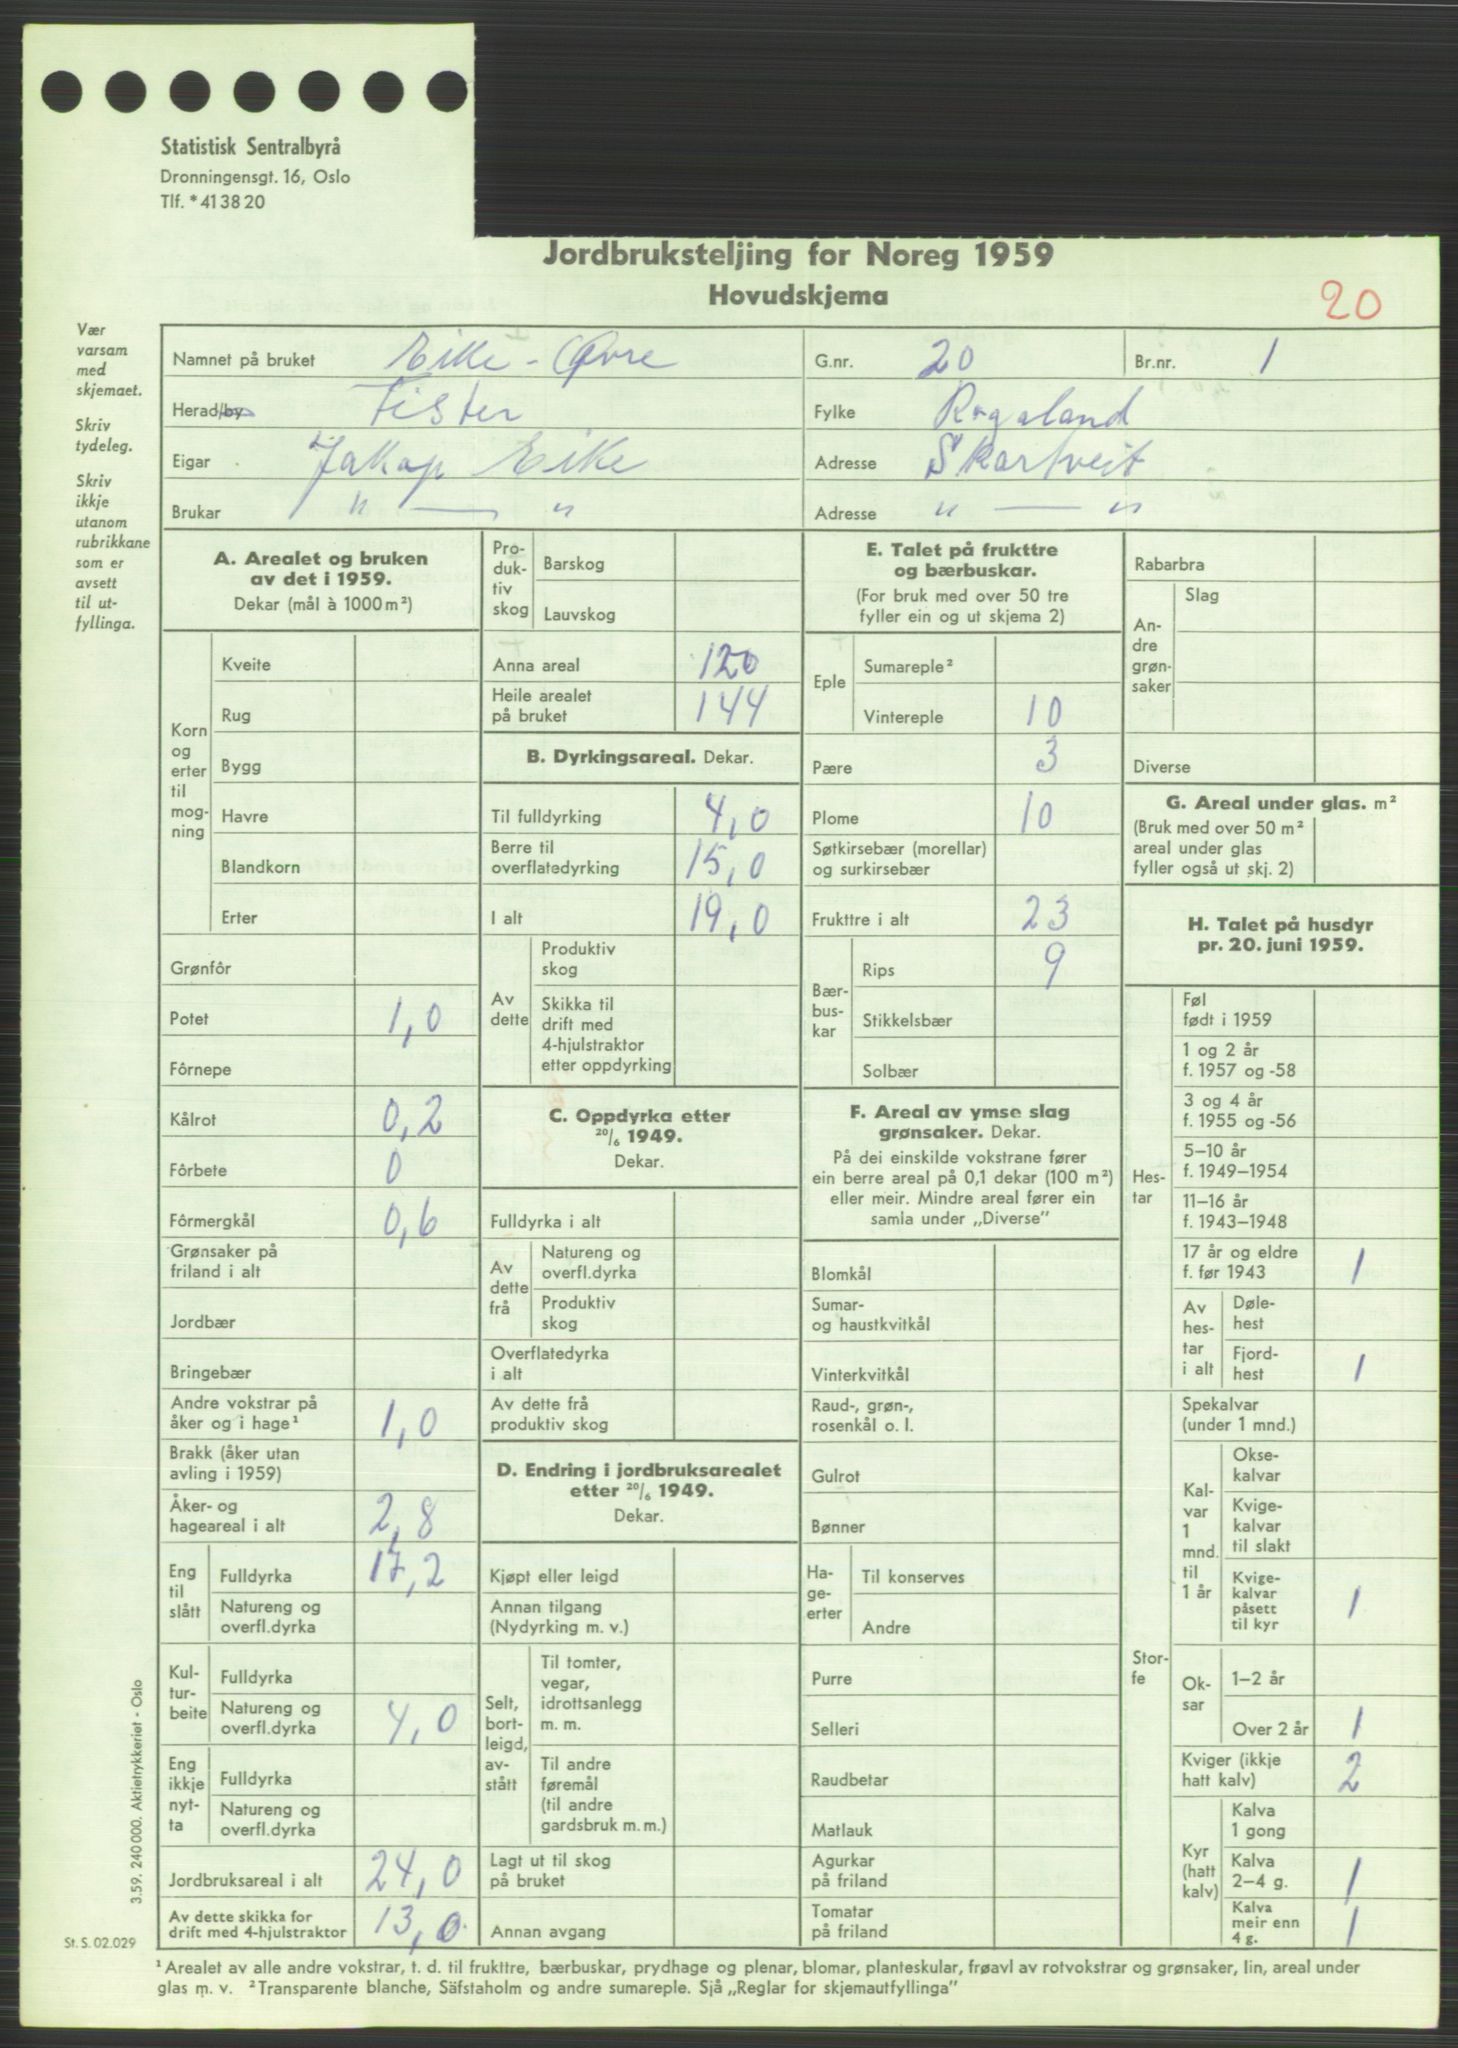 Statistisk Sentralbyrå
Dronningensgt. 16, Oslo
Tlf. *41 38 20
Jordbruksteljing for Noreg 1959
Hovudskjema
20
Vær
varsam
med
skjemaet.
Skriv
tydeleg.
Skriv
ikkje
utanom
rubrikkane
som er
avsett
til ut-
fyllinga.
Namnet på bruket Eike - Øvre G.nr. 20 Br.nr. 1
Herad/by Fister Fylke Rogaland
Eigar Jakop Eike Adresse Skartveit
Brukar " — " Adresse " — "
A. Arealet og bruken
av det i 1959.
Dekar (mål à 1000 m²)
Korn
og
erter
til
mog-
ning
Kveite
Rug
Bygg
Havre
Blandkorn
Erter
Grønfôr
Potet 1,0
Fôrnepe
Kålrot 0,2
Fôrbete 0
Fôrmergkål 0,6
Grønsaker på
friland i alt
Jordbær
Bringebær
Andre vokstrar på
åker og i hage¹ 1,0
Brakk (åker utan
avling i 1959)
Åker- og
hageareal i alt 2,8
Eng
til
slått
Fulldyrka 17,2
Natureng og
overfl.dyrka
Kul-
tur-
beite
Fulldyrka
Natureng og
overfl.dyrka 4,0
Eng
ikkje
nyt-
ta
Fulldyrka
Natureng og
overfl.dyrka
Jordbruksareal i alt 24,0
Av dette skikka for
drift med 4-hjulstraktor 13,0
Pro-
duk-
tiv
skog
Barskog
Lauvskog
Anna areal 120
Heile arealet
på bruket 144
B. Dyrkingsareal. Dekar.
Til fulldyrking 4,0
Berre til
overflatedyrking 15,0
I alt 19,0
Av
dette
Produktiv
skog
Skikka til
drift med
4-hjulstraktor
etter oppdyrking
C. Oppdyrka etter
20/6 1949.
Dekar.
Fulldyrka i alt
Av
dette
frå
Natureng og
overfl.dyrka
Produktiv
skog
Overflatedyrka
i alt
Av dette frå
produktiv skog
D. Endring i jordbruksarealet
etter 20/6 1949.
Dekar.
Kjøpt eller leigd
Annan tilgang
(Nydyrking m. v.)
Selt,
bort-
leigd,
av-
stått
Til tomter,
vegar,
idrottsanlegg
m. m.
Til andre
føremål
(til andre
gardsbruk m. m.)
Lagt ut til skog
på bruket
Annan avgang
E. Talet på frukttre
og bærbuskar.
(For bruk med over 50 tre
fyller ein og ut skjema 2)
Eple
Sumareple²
Vintereple 10
Pære 3
Plome 10
Søtkirsebær (morellar)
og surkirsebær
Frukttre i alt 23
Bær-
bus-
kar
Rips 9
Stikkelsbær
Solbær
F. Areal av ymse slag
grønsaker. Dekar.
På dei einskilde vokstrane fører
ein berre areal på 0,1 dekar (100 m²)
eller meir. Mindre areal fører ein
samla under „Diverse”
Blomkål
Sumar-
og haustkvitkål
Vinterkvitkål
Raud-, grøn-,
rosenkål o. l.
Gulrot
Bønner
Ha-
ge-
erter
Til konserves
Andre
Purre
Selleri
Raudbetar
Matlauk
Agurkar
på friland
Tomatar
på friland
Rabarbra
An-
dre
grøn-
saker
Slag
Diverse
G. Areal under glas. m²
(Bruk med over 50 m²
areal under glas
fyller også ut skj. 2)
H. Talet på husdyr
pr. 20. juni 1959.
Hes-
tar
Føl
født i 1959
1 og 2 år
f. 1957 og -58
3 og 4 år
f. 1955 og -56
5–10 år
f. 1949–1954
11–16 år
f. 1943–1948
17 år og eldre
f. før 1943 1
Av
hes-
tar
i alt
Døle-
hest
Fjord-
hest 1
Stor-
fe
Spekalvar
(under 1 mnd.)
Kal-
var
1
mnd.
til
1 år
Okse-
kalvar
Kvige-
kalvar
til slakt
Kvige-
kalvar
påsett
til kyr 1
Ok-
sar
1–2 år
Over 2 år 1
Kviger (ikkje
hatt kalv) 2
Kyr
(hatt
kalv)
Kalva
1 gong
Kalva
2–4 g. 1
Kalva
meir enn
4 g. 1
3.59. 240 000. Aktietrykkeriet - Oslo
St. S. 02.029
¹ Arealet av alle andre vokstrar, t. d. til frukttre, bærbuskar, prydhage og plenar, blomar, planteskular, frøavl av rotvokstrar og grønsaker, lin, areal under
glas m. v. ² Transparente blanche, Säfstaholm og andre sumareple. Sjå „Reglar for skjemautfyllinga”